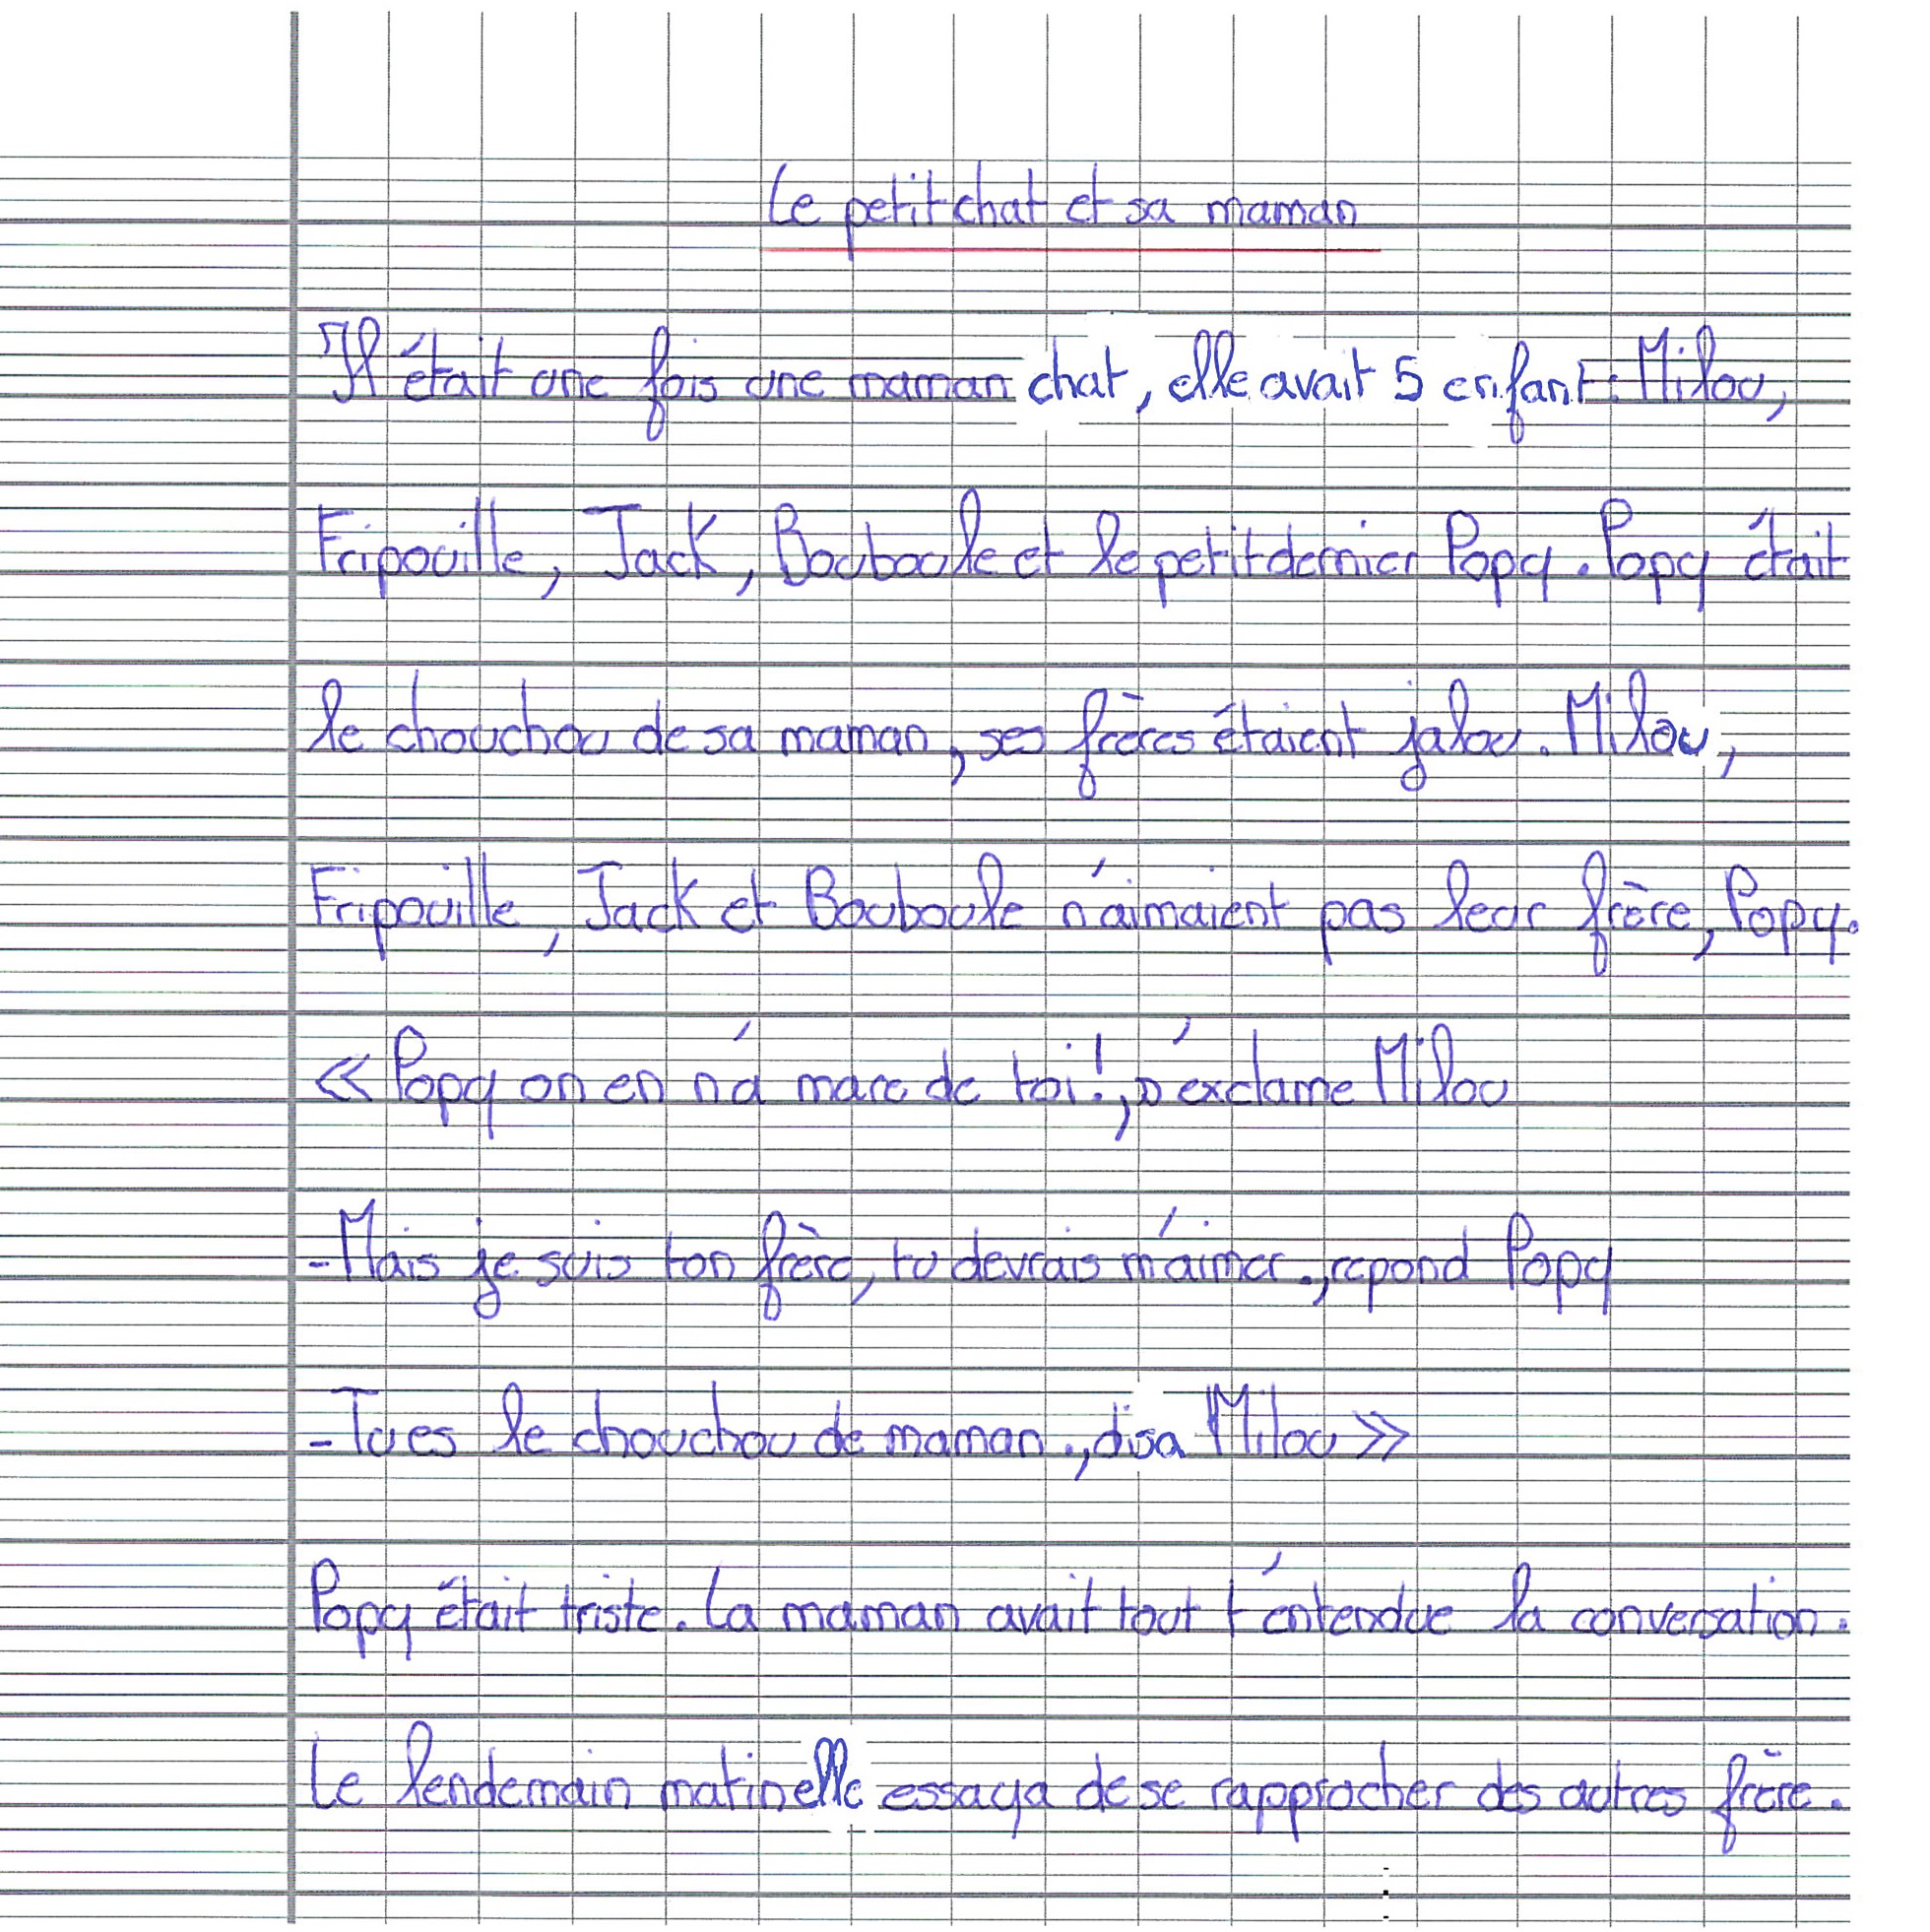 Le petit chat et sa maman
Il était une fois une maman chat, elle avait 5 enfant : Milou,
Fripouille, Jack, Bouboule et le petit dernier Popy. Popy était
le chouchou de sa maman, ses frères étaient jalou. Milou,
Fripouille, Jack et Bouboule n'aimaient pas leur frère, Popy.
« Popy on en n'a marc de toi !, s'exclame Milou
- Mais je suis ton frère, tu devrais m'aimer., repond Popy
- Tu es le chouchou de maman., disa Milou »
Popy était triste. La maman avait tout t'entendue la conversation.
Le lendemain matin elle essaya de se rapprocher des autres frère.